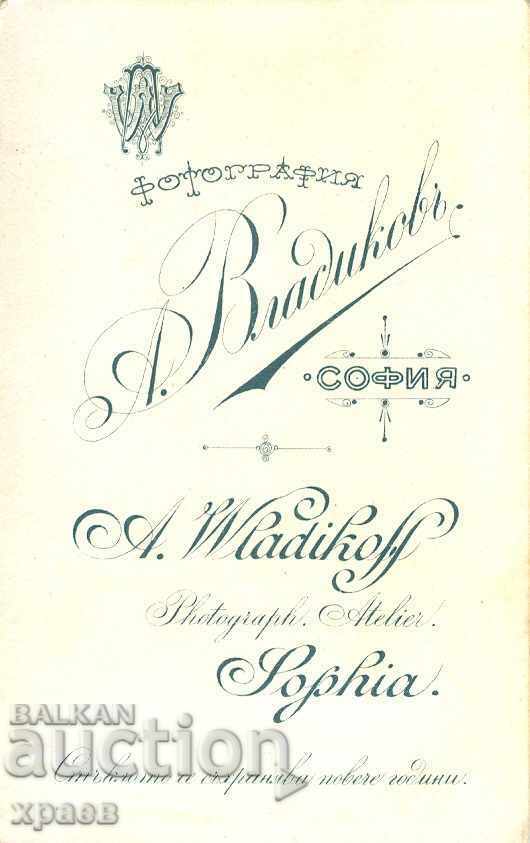 ФОТОГРАФИЯ
А. Владиковъ.
·СОФИЯ·
A. Wladikoff
Photograph. Atelier.
Sophia.
BALKAN
auction
Стъклото се съхранява повече години.
храсв